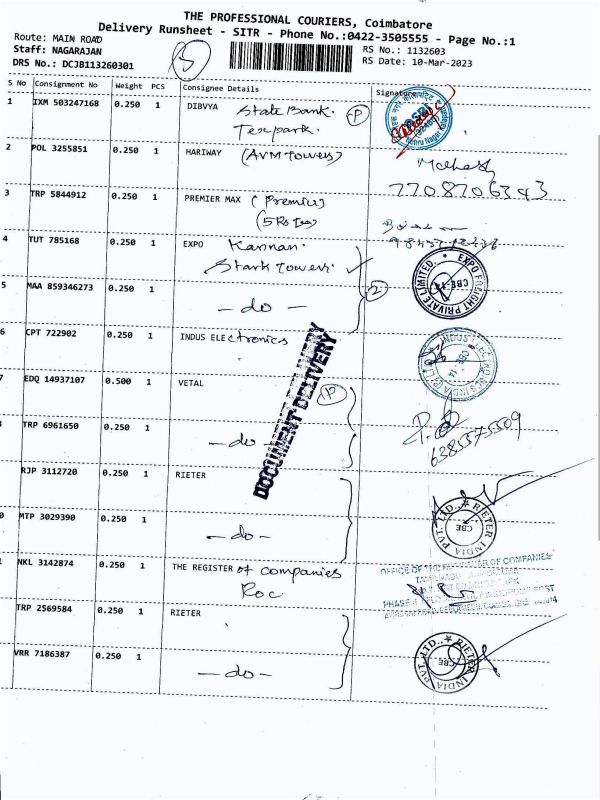 THE PROFESSIONAL COURIERS, Coimbatore
Delivery Runsheet - SITR - Phone No.:0422-3505555 - Page No.:1
Route: MAIN ROAD RS No.: 1132603
Staff: NAGARAJAN RS Date: 10-Mar-2023
DRS No.: DCJB113260301
S No Consignment No Weight PCS Consignee Details Signature
1 IXM 503247168 0.250 1 DIBVYA State Bank. P
Texpark.
2 POL 3255851 0.250 1 HARIWAY (AVM Towers)
7708706343
3 TRP 5844912 0.250 1 PREMIER MAX (Premier)
4 TUT 785168 0.250 1 EXPO Kannan.
Stark Towers.
EXPO FREIGHT PRIVATE LIMITED.
5 MAA 859346273 0.250 1 - do - 2
6 CPT 722902 0.250 1 INDUS ELECtronics
DOCUMENT DELIVERY
7 EDQ 14937107 0.500 1 VETAL P
TRP 6961650 0.250 1 - do -
6385575509
RJP 3112720 0.250 1 RIETER
RIETER INDIA PVT. LTD., CBE
0 MTP 3029390 0.250 1 - do -
NKL 3142874 0.250 1 THE REGISTER of companies
Roc
OFFICE OF THE REGISTRAR OF COMPANIES
TRP 2569584 0.250 1 RIETER
RIETER INDIA PVT. LTD., CBE
VRR 7186387 0.250 1 - do -